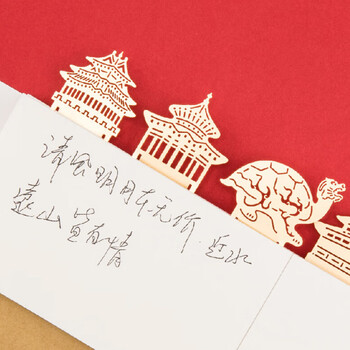 清风明月本无价 近水
远山皆有情